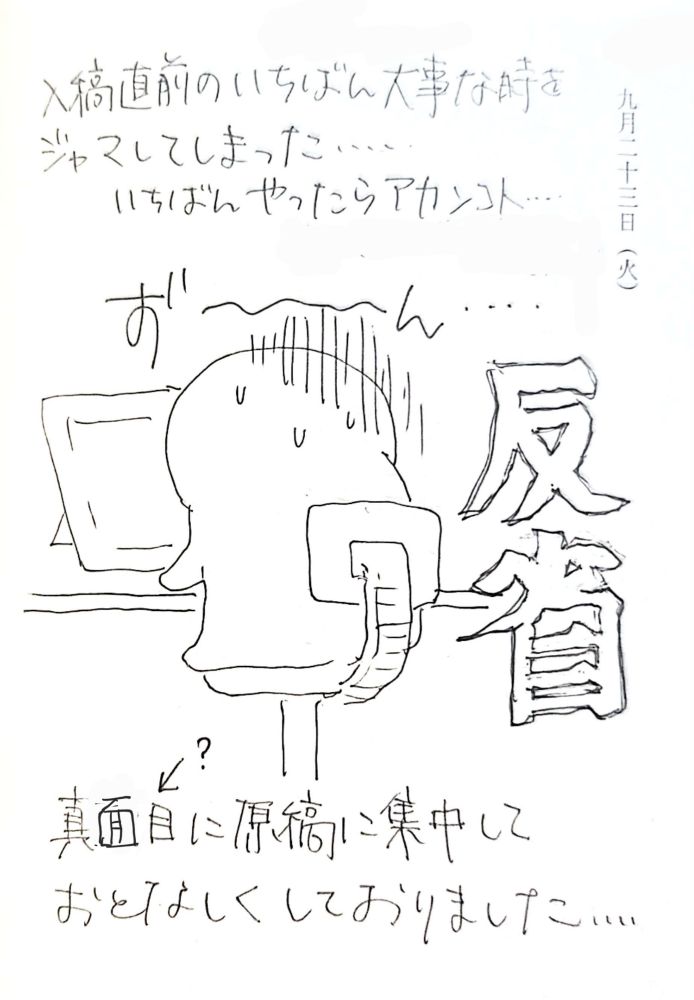 九月二十三日（火）
入稿直前のいちばん大事な時を
ジャマしてしまった……
いちばんやったらアカンコト…‥
ず〜ん‥‥
反省
?
真面目に原稿に集中して
おとなしくしておりました‥‥